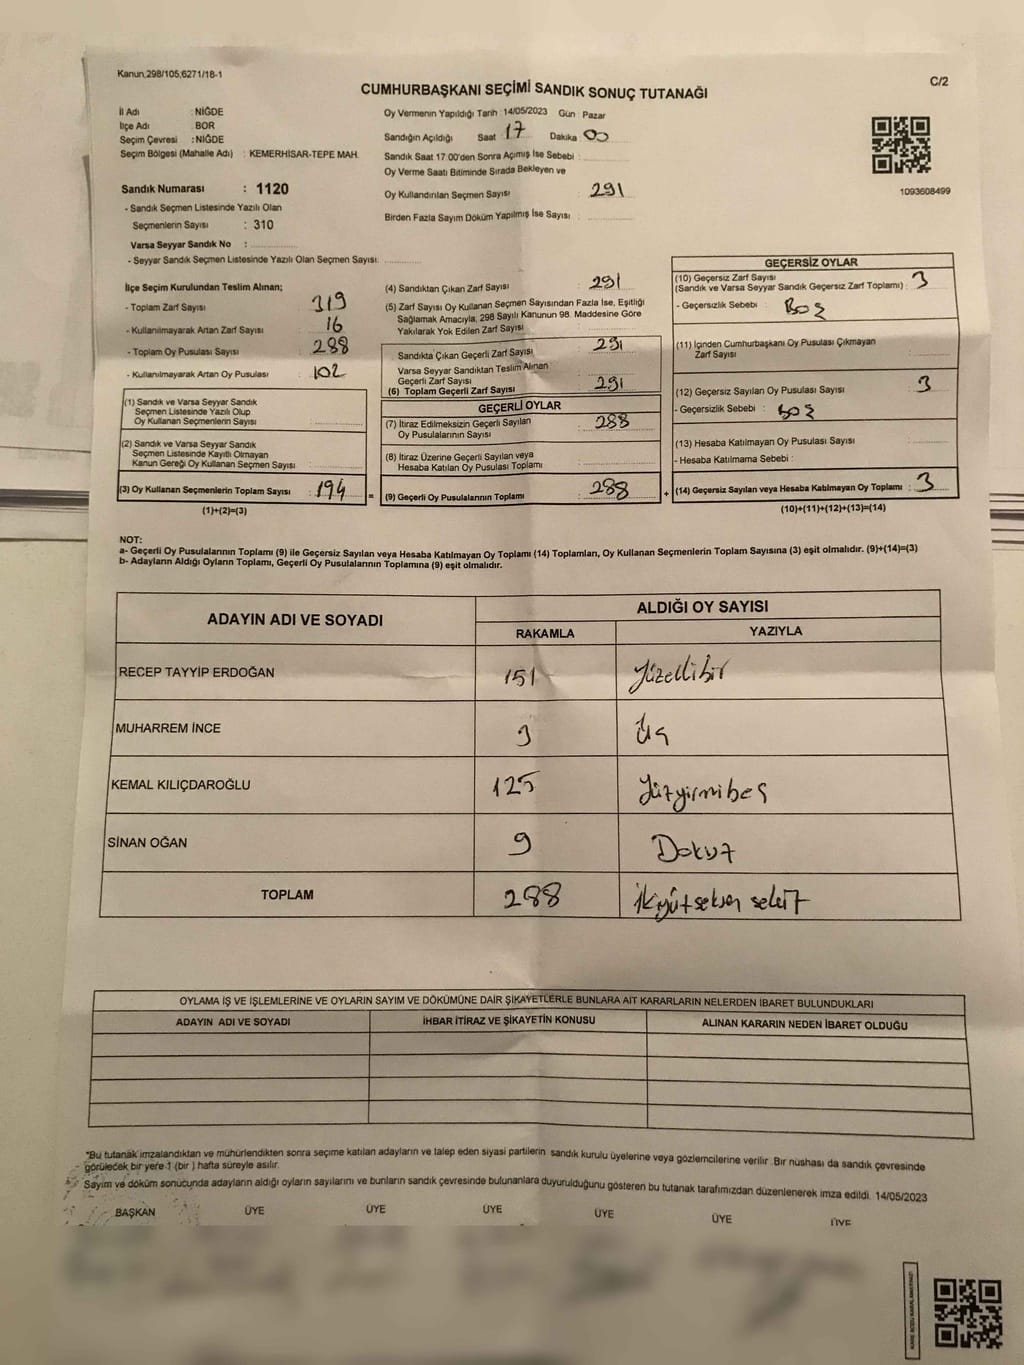 Kanun,298/105,6271/18-1
C/2
CUMHURBAŞKANI SEÇİMİ SANDIK SONUÇ TUTANAĞI
İl Adı : NİĞDE
İlçe Adı : BOR
Seçim Çevresi : NİĞDE
Seçim Bölgesi (Mahalle Adı) : KEMERHİSAR-TEPE MAH.
Sandık Numarası : 1120
- Sandık Seçmen Listesinde Yazılı Olan
Seçmenlerin Sayısı : 310
Varsa Seyyar Sandık No :
- Seyyar Sandık Seçmen Listesinde Yazılı Olan Seçmen Sayısı:
Oy Vermenin Yapıldığı Tarih : 14/05/2023 Gün : Pazar
Sandığın Açıldığı Saat : 17 Dakika : 00
Sandık Saat 17:00'den Sonra Açımış İse Sebebi :
Oy Verme Saati Bitiminde Sırada Bekleyen ve
Oy Kullandırılan Seçmen Sayısı : 291
Birden Fazla Sayım Döküm Yapılmış İse Sayısı :
1093608499
İlçe Seçim Kurulundan Teslim Alınan;
- Toplam Zarf Sayısı : 319
- Kullanılmayarak Artan Zarf Sayısı : 16
- Toplam Oy Pusulası Sayısı : 288
- Kullanılmayarak Artan Oy Pusulası : 102
(1) Sandık ve Varsa Seyyar Sandık
Seçmen Listesinde Yazılı Olup
Oy Kullanan Seçmenlerin Sayısı :
(2) Sandık ve Varsa Seyyar Sandık
Seçmen Listesinde Kayıtlı Olmayan
Kanun Gereği Oy Kullanan Seçmen Sayısı :
(3) Oy Kullanan Seçmenlerin Toplam Sayısı : 194
(1)+(2)=(3)
=
(4) Sandıktan Çıkan Zarf Sayısı : 291
(5) Zarf Sayısı Oy Kullanan Seçmen Sayısından Fazla İse, Eşitliği
Sağlamak Amacıyla, 298 Sayılı Kanunun 98. Maddesine Göre
Yakılarak Yok Edilen Zarf Sayısı :
Sandıkta Çıkan Geçerli Zarf Sayısı : 291
Varsa Seyyar Sandıktan Teslim Alınan
Geçerli Zarf Sayısı
(6) Toplam Geçerli Zarf Sayısı : 291
GEÇERLİ OYLAR
(7) İtiraz Edilmeksizin Geçerli Sayılan
Oy Pusulalarının Sayısı : 288
(8) İtiraz Üzerine Geçerli Sayılan veya
Hesaba Katılan Oy Pusulası Toplamı :
(9) Geçerli Oy Pusulalarının Toplamı : 288
+
GEÇERSİZ OYLAR
(10) Geçersiz Zarf Sayısı
(Sandık ve Varsa Seyyar Sandık Geçersiz Zarf Toplamı) : 3
- Geçersizlik Sebebi : Boş
(11) İçinden Cumhurbaşkanı Oy Pusulası Çıkmayan
Zarf Sayısı :
(12) Geçersiz Sayılan Oy Pusulası Sayısı : 3
- Geçersizlik Sebebi : Boş
(13) Hesaba Katılmayan Oy Pusulası Sayısı :
- Hesaba Katılmama Sebebi :
(14) Geçersiz Sayılan veya Hesaba Katılmayan Oy Toplamı : 3
(10)+(11)+(12)+(13)=(14)
NOT:
a- Geçerli Oy Pusulalarının Toplamı (9) ile Geçersiz Sayılan veya Hesaba Katılmayan Oy Toplamı (14) Toplamları, Oy Kullanan Seçmenlerin Toplam Sayısına (3) eşit olmalıdır. (9)+(14)=(3)
b- Adayların Aldığı Oyların Toplamı, Geçerli Oy Pusulalarının Toplamına (9) eşit olmalıdır.
ADAYIN ADI VE SOYADI
ALDIĞI OY SAYISI
RAKAMLA YAZIYLA
RECEP TAYYİP ERDOĞAN 151 Yüzellibir
MUHARREM İNCE 3 Üç
KEMAL KILIÇDAROĞLU 125 Yüzyirmibeş
SİNAN OĞAN 9 Dokuz
TOPLAM 288 İkiyüzseksen sekiz
OYLAMA İŞ VE İŞLEMLERİNE VE OYLARIN SAYIM VE DÖKÜMÜNE DAİR ŞİKAYETLERLE BUNLARA AİT KARARLARIN NELERDEN İBARET BULUNDUKLARI
ADAYIN ADI VE SOYADI İHBAR İTİRAZ VE ŞİKAYETİN KONUSU ALINAN KARARIN NEDEN İBARET OLDUĞU
*Bu tutanak imzalandıktan ve mühürlendikten sonra seçime katılan adayların ve talep eden siyasi partilerin sandık kurulu üyelerine veya gözlemcilerine verilir. Bir nüshası da sandık çevresinde
görülecek bir yere 1 (bir ) hafta süreyle asılır.
Sayım ve döküm sonucunda adayların aldığı oyların sayılarını ve bunların sandık çevresinde bulunanlara duyurulduğunu gösteren bu tutanak tarafımızdan düzenlenerek imza edildi. 14/05/2023
BAŞKAN ÜYE ÜYE ÜYE ÜYE ÜYE ÜYE